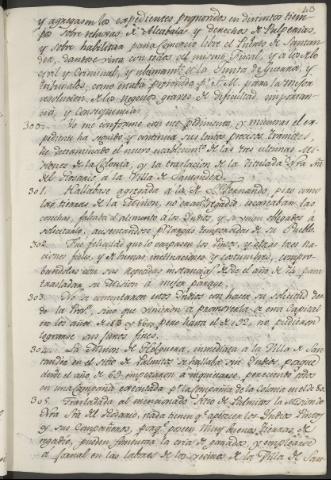 40
y agregasen los expedientes promovidos en distintos tiem
pos sobre rebaxas de Alcabala y derechos de Pulperias,
y sobre habilitar para comercio libre el Puerto de Santan
der, dandome vista con todos el mismo Fiscal, y a lo
Civil y Criminal, y ultimamente la Junta de Guerra, y
por S. M. para la mejor
resolucion de los negocios graves de dificultad, importan
cia, y consequencia.
300. Yo me conformé con este pedimento, y mientras el ex
pediente ha seguido y continua sus lentos, precisos tramites,
he determinado el nuevo establecimto. de las tres ultimas Mi
siones de la Colonia, y la traslacion de la titulada Nra Sra
del Rosario, a la Villa de Santander.
301. Hallabase agregada a la de Sn. Fernando, pero como
las tierras de la Mision, no
cosechas, faltaba el alimento a los Indios, y se veian obligados a
solicitarlo, ausentandose pr. largas temporadas de su Pueblo.
302. Fue felicidad que lo
ciones fieles, y de buenas inclinaciones y costumbres, compro
bandolas con sus repetidas instancias desde el año de para
trasladar su Mision a mejor parage.
303. No se contentaron estos Indios con hacer su solicitud den
tro de la Prova., sino que vinieron a promoverla a esta Capital
en los años de y pero hasta el de 92, no pudieron
lograr sus buenos fines.
304. La Mision de Helguera, inmediata a la Villa de San
tander en el sitio de Palmitos se hallaba sin Indios, porque
desde el año de 63, empezaron a inquietarse, pereciendo todos
en una Campaña executada pr. la Compañia de la Colonia en el de 80.
305. Trasladada al mencionado sitio de Palmitos la Mision de
Nra Sra del Rosario, nada tienen que apetecer los Indios Pintos
y sus Compañeros, porqe. poseen muy buenas tierras de
regadio, pueden fomentar la cria de ganados, y emplearse
a jornal en las labores de los vecinos de la Villa de San